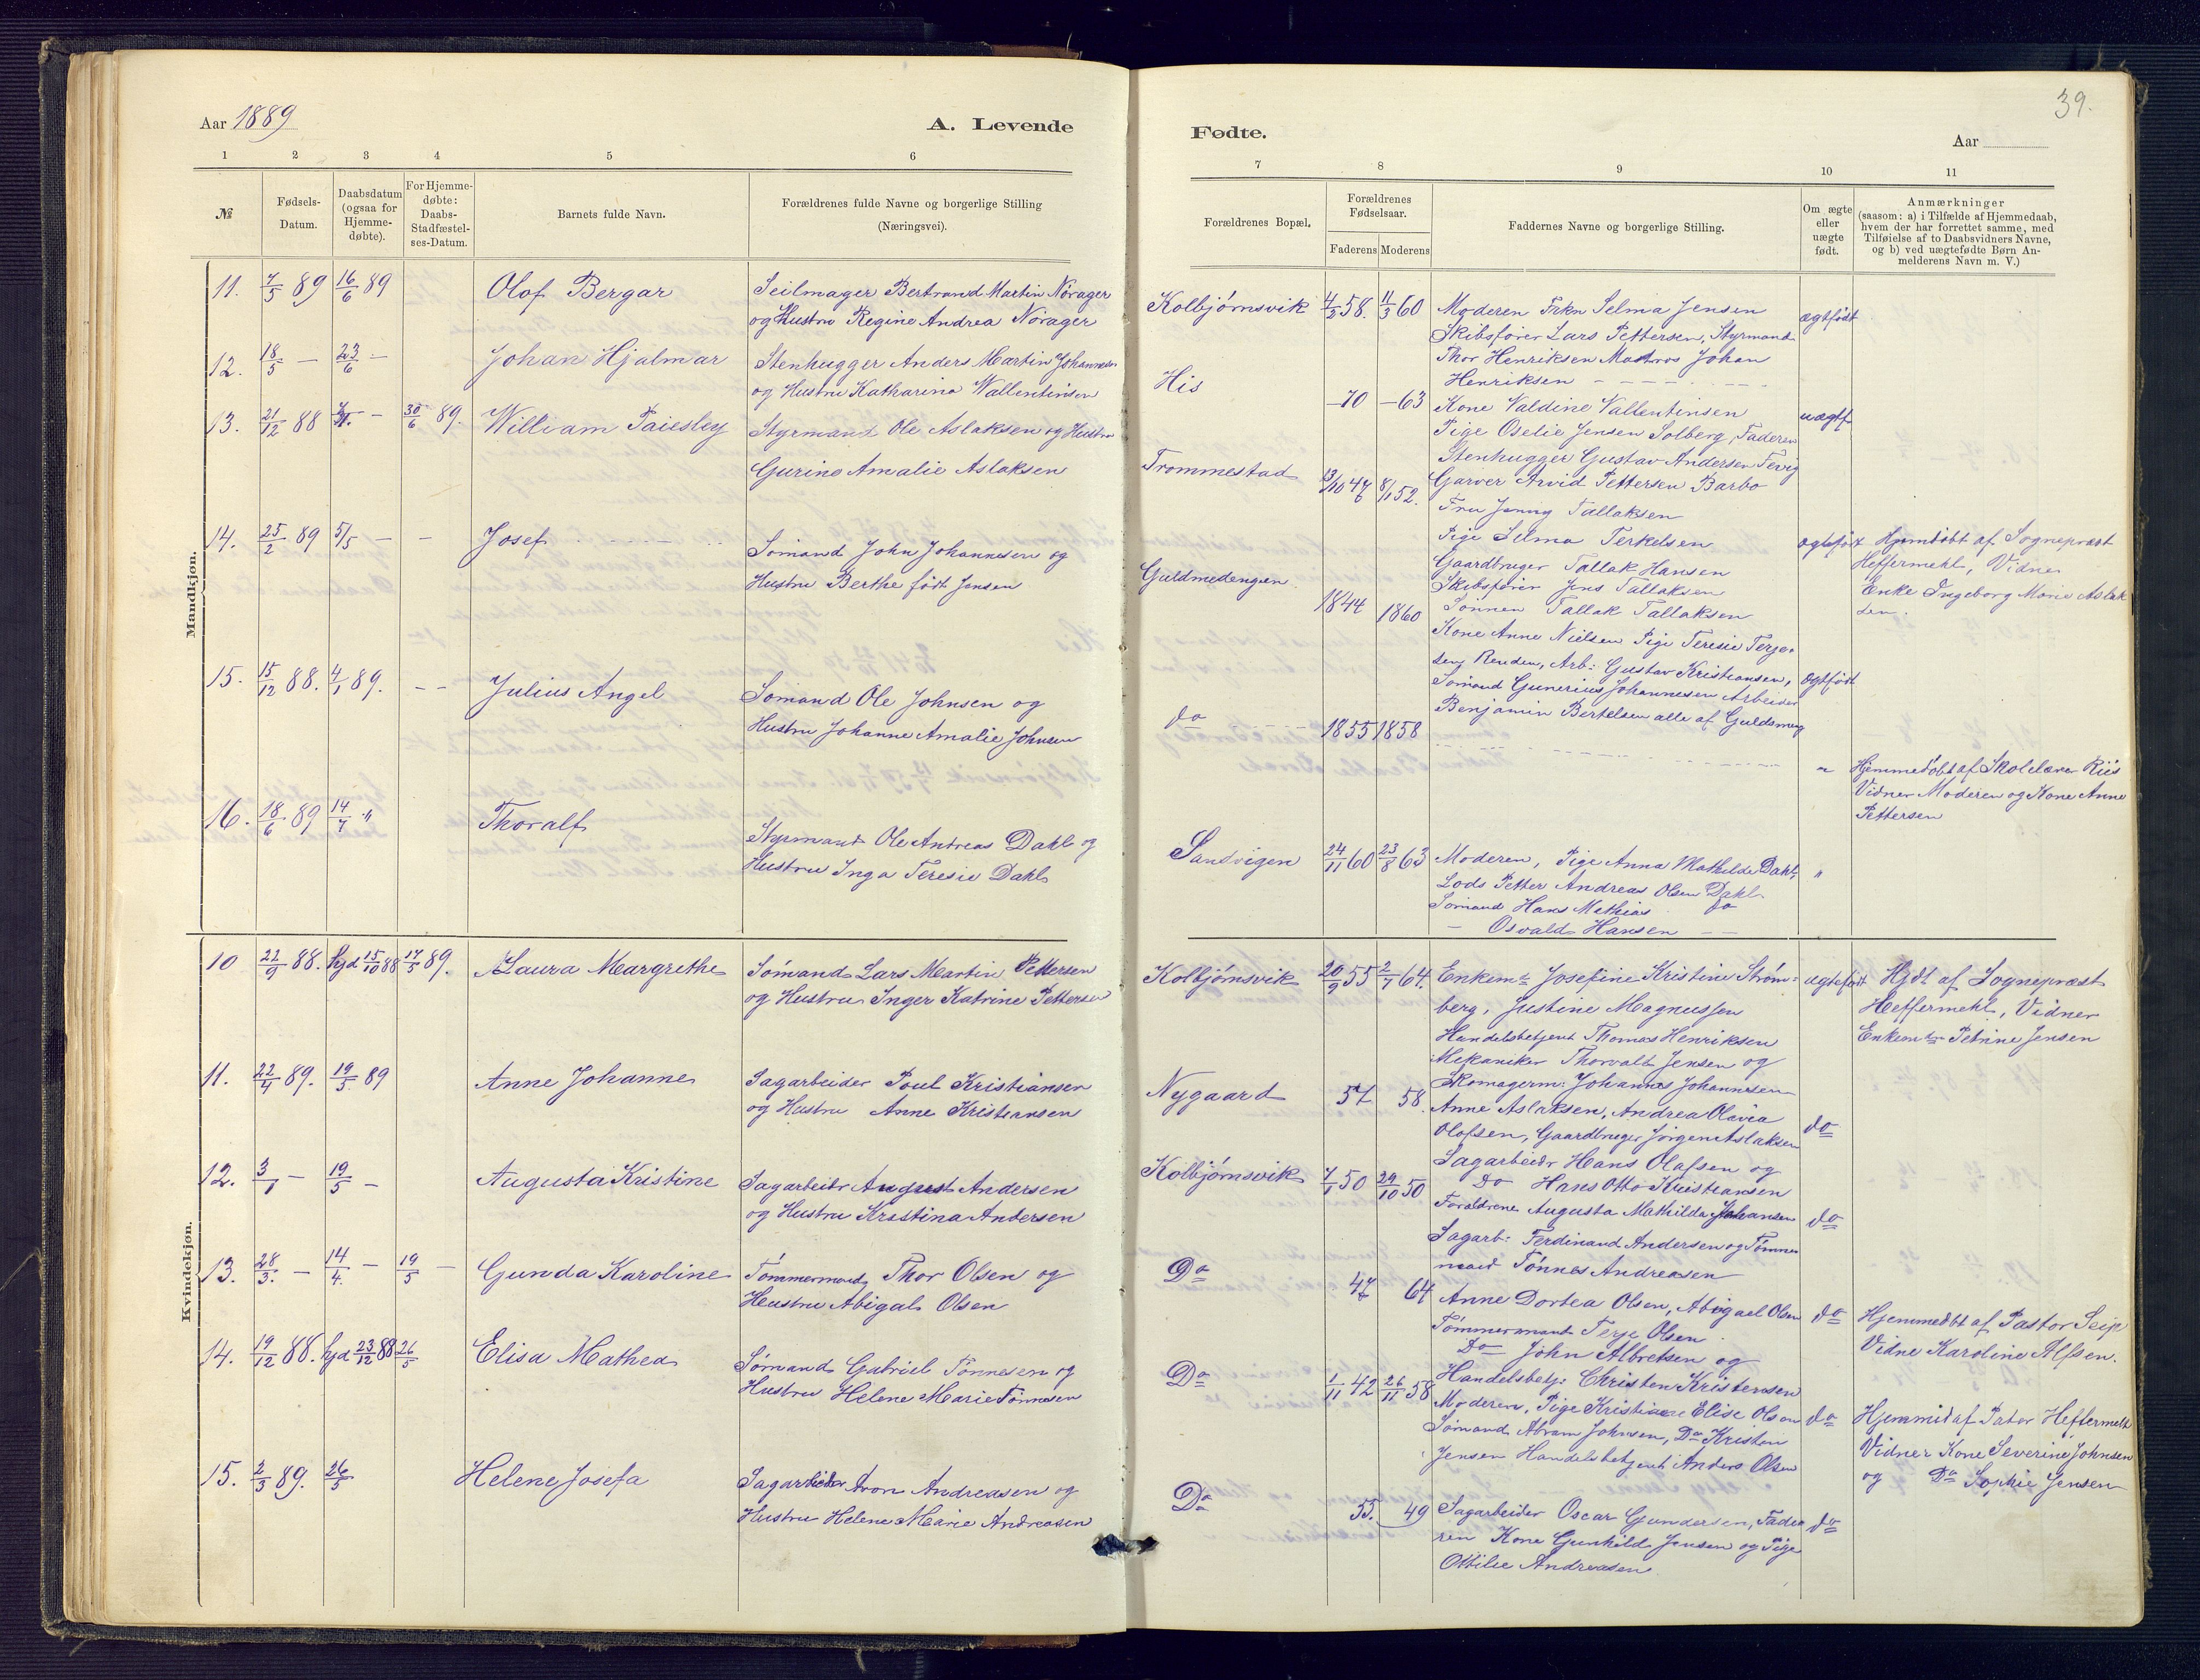 39.
Aar 1889
A. Levende
Fødte.
Aar
1 2 3 4 5 6
7 8 9 10 11
№
Fødsels-
Datum.
Daabsdatum
(ogsaa for
Hjemme-
døbte).
For Hjemme-
døbte:
Daabs-
Stadfæstel-
ses-Datum.
Barnets fulde Navn.
Forældrenes fulde Navne og borgerlige Stilling
(Næringsvei).
Forældrenes Bopæl.
Forældrenes
Fødselsaar.
Faderens Moderens
Faddernes Navne og borgerlige Stilling.
Om ægte
eller
uægte
født.
Anmærkninger
(saasom: a) i Tilfælde af Hjemmedaab,
hvem der har forrettet samme, med
Tilføielse af to Daabsvidners Navne,
og b) ved uægtefødte Børn An-
melderens Navn m. V.)
Mandkjøn.
11. 7/5 89 16/6 89 Olof Bergar
Seilmager Bertrand Martin Nørager
og Hustru Regine Andrea Nørager
12. 18/5 — 23/6 — Johan Hjalmar
Stenhugger Anders Martin Johannesen
og Hustru Katharina Wallentinsen
13. 21/12 88 — 30/6 89. William Paiesley
Styrmand Ole Aslaksen og Hustru
Gurine Amalie Aslaksen
14. 25/2 89 5/5 — — Josef
Sømand John Johannesen og
Hustru Berthe født Jensen
15. 15/12 88. 4/1 89. — — Julius Angel
Sømand Ole Johnsen og
Hustru Johanne Amalie Johnsen
16. 18/6 89 14/7 " Thoralf
Styrmand Ole Andreas Dahl og
Hustru Inga Teresie Dahl
Kvindekjøn.
10 22/9 88. hjd 15/10 88 17/5 89. Laura Margrethe
Sømand Lars Martin Pettersen
og Hustru Inger Katrine Pettersen
11. 22/4 89. 19/5 89 Anne Johanne
Sagarbeider Poul Kristiansen
og Hustru Anne Kristiansen
12. 3/1 — 19/5 — Augusta Kristine
Sagarbeider August Andersen
og Hustru Kristina Andersen
13. 28/3. — 14/4. — 19/5 — Gunda Karoline
Tømmermand Thor Olsen og
Hustru Abigal Olsen
14. 19/12 88. hjd 23/12 88 26/5 Elisa Mathea
Sømand Gabriel Tønnesen og
Hustru Helene Marie Tønnesen
15. 2/3 89. 26/5 Helene Josefa
Sagarbeider Aron Andreasen og
Hustru Helene Marie Andreasen
Kolbjørnsvik 4/2 58. 11/3 60
Moderen Frkn Selma Jensen
Skibsfører Lars Pettersen, Styrmand
Thor Henriksen Matros Johan
Henriksen
ægtfødt
His — 70 — 63
Kone Valdine Vallentinsen
Pige Oselie Jensen Solberg, Faderen
Stenhugger Gustav Andersen Fevig
Garver Arvid Pettersen Barbo
uægtf
Trommestad 13/10 47 8/1 52.
Fru Jenny Tallaksen
Pige Selma Terkelsen
Gaardbruger Tallak Hansen
Skibsfører Jens Tallaksen
Sønnen Tallak Tallaksen
ægtefødt
Hjemdøbt af Sognepræst
Heffermehl, Vidner
Enke Ingeborg Marie Aslak
sen.
Guldmedengen. 1844 1860
Kone Anne Nielsen Pige Teresie Terje-
sen Renden, Arb: Gustav Kristiansen,
Sømand Gunerius Johannesen Arbeider
Benjamin Bertelsen alle af Guldsmeng
ægtfødt
do 1855 1858
"
Hjemmedøbt af Skolelærer Riis
Vidner Moderen og Kone Anne
Pettersen
Sandvigen 24/11 60 23/8 63
Moderen, Pige Anna Mathilde Dahl,
Lods Petter Andreas Olsen Dahl
Sømand Hans Mathias do
— Osvald Hansen —
"
Kolbjørnsvik 20/9 55 2/7 64.
Enkem: Josefine Kristine Strøm-
berg, Justine Magnussen
Handelsbetjent Thomas Henriksen
Mekaniker Thorvalt Jensen og
Skomagerm: Johannes Johannesen
ægtefødt
Hjdt af Sognepræst
Heffermehl, Vidner
Enkem Petrine Jensen
Nygaard 57 58.
Anne Aslaksen, Andrea Olavia
Olofsen, Gaardbruger Jørgen Aslaksen
Sagarbeider Hans Olafsen og
do Hans Otto Kristiansen
do
Kolbjørnsvik 7/1 50 29/10 50
Forældrene Augusta Mathilda Johansen
Sagarb: Ferdinand Andersen og Tømmer
mand Tønnes Andreasen
do
Do 47 64
Anne Dortea Olsen, Abigael Olsen
Tømmermand Terje Olsen
Do John Albretsen og
Handelsbetj: Christen Kristensen
do
Hjemmedbt af Pastor Seip
Vidne Karoline Alfsen.
Do 1/11 42 26/11 58
Moderen, Pige Kristiane Elise Olsen
Sømand Abram Johnsen, Do Kristen
Jensen Handelsbetjent Anders Olsen
do
Hjemmd af Pator Heffermehl
Vidner Kone Severine Johnsen
og Do Sophie Jensen
Do 55. 49
Sagarbeider Oscar Gundersen, Fade
ren Kone Gunhild Jensen og Pige
Ottilie Andreasen
do